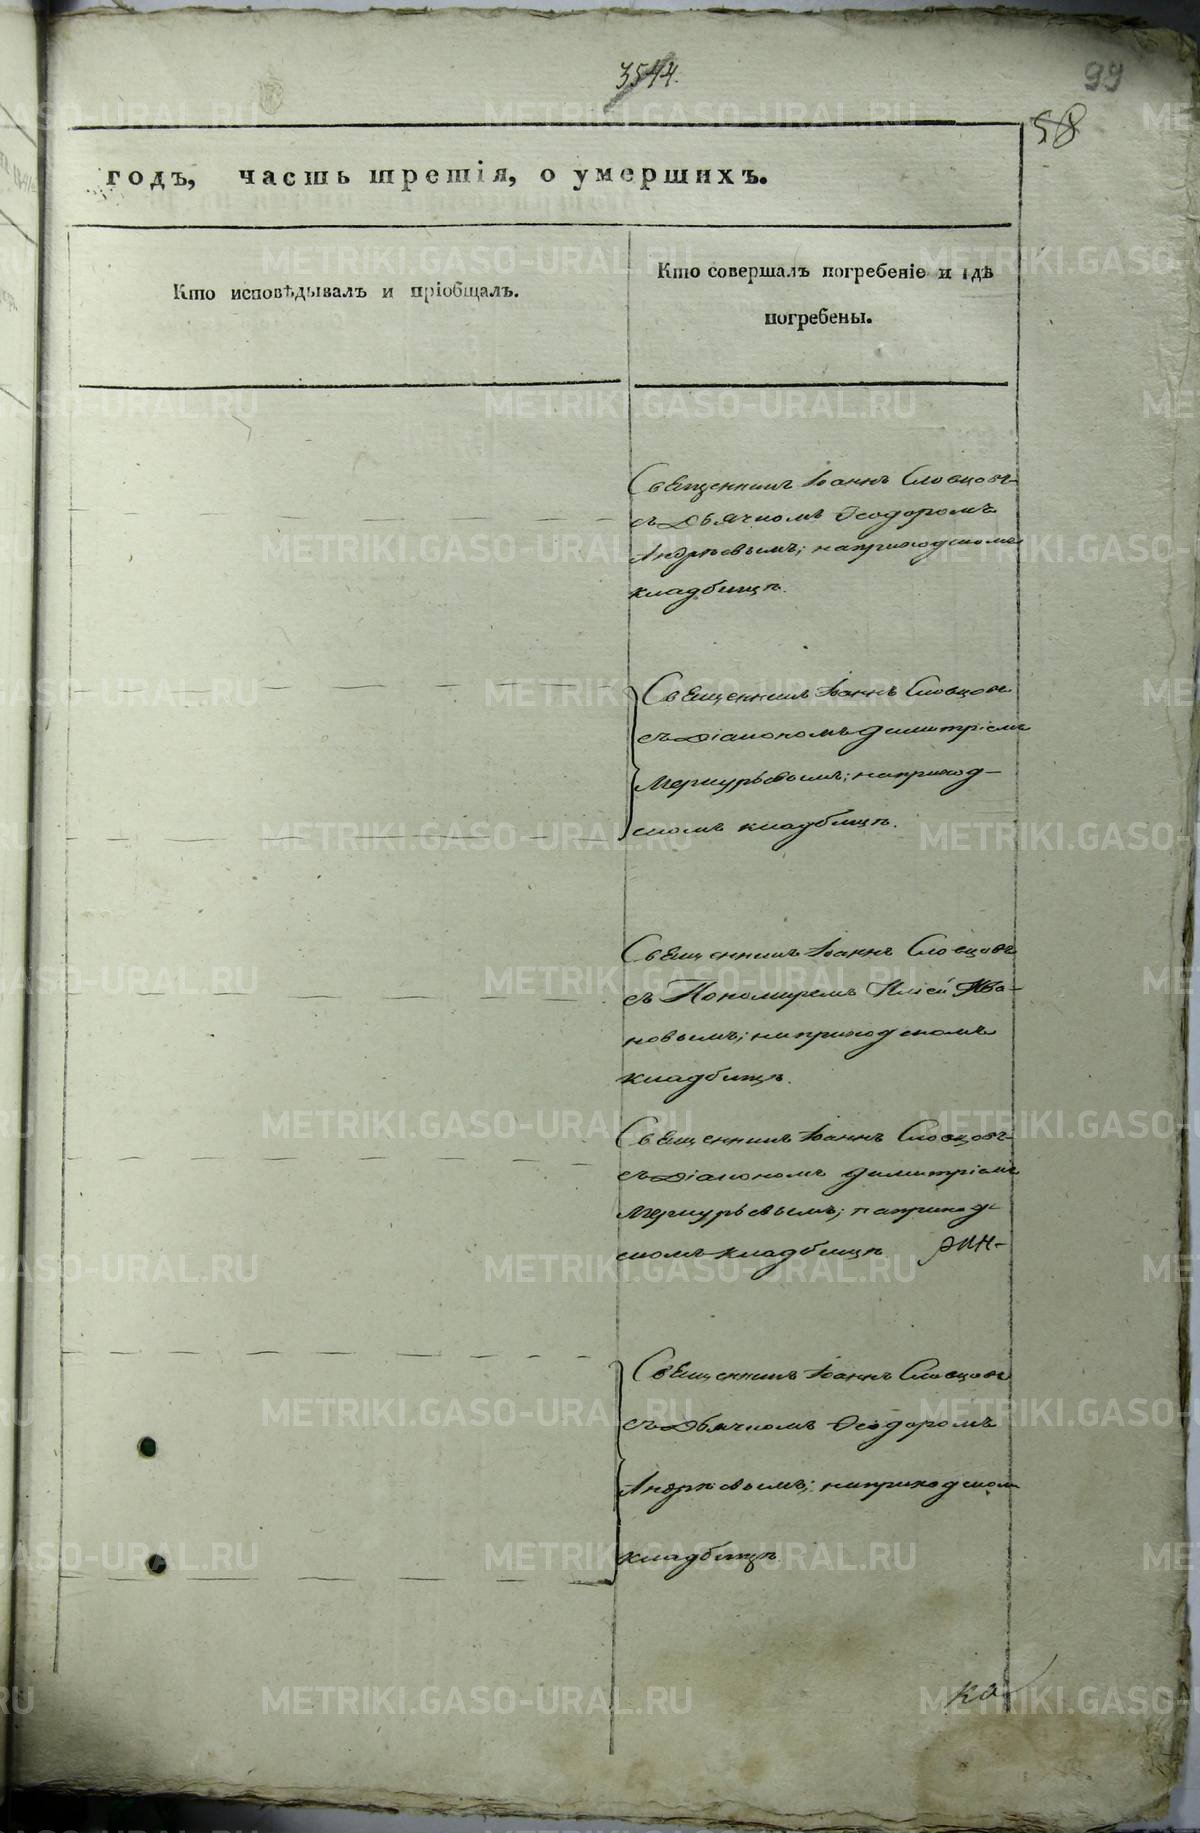 3544.
99
58
годъ, часть третія, о умершихъ.
Кто исповѣдывалъ и пріобщалъ.
Кто совершалъ погребеніе и гдѣ
погребены.
Священникъ Іоаннъ Словцовъ
съ Дьячкомъ Ѳеодоромъ
Андрѣевымъ; на приходскомъ
кладбищѣ.
Священникъ Іоаннъ Словцовъ
съ Діакономъ Димитріемъ
Меркурьевымъ; на приход-
скомъ кладбищѣ.
Священникъ Іоаннъ Словцовъ
съ Пономаремъ Иліей Ива-
новымъ; на приходскомъ
кладбищѣ.
Священникъ Іоаннъ Словцовъ
съ Діакономъ Димитріемъ
Меркурьевымъ; на приход-
скомъ кладбищѣ
Священникъ Іоаннъ Словцовъ
съ Дьячкомъ Ѳеодоромъ
Андрѣевымъ; на приходском
кладбищѣ
METRIKI.GASO-URAL.RU